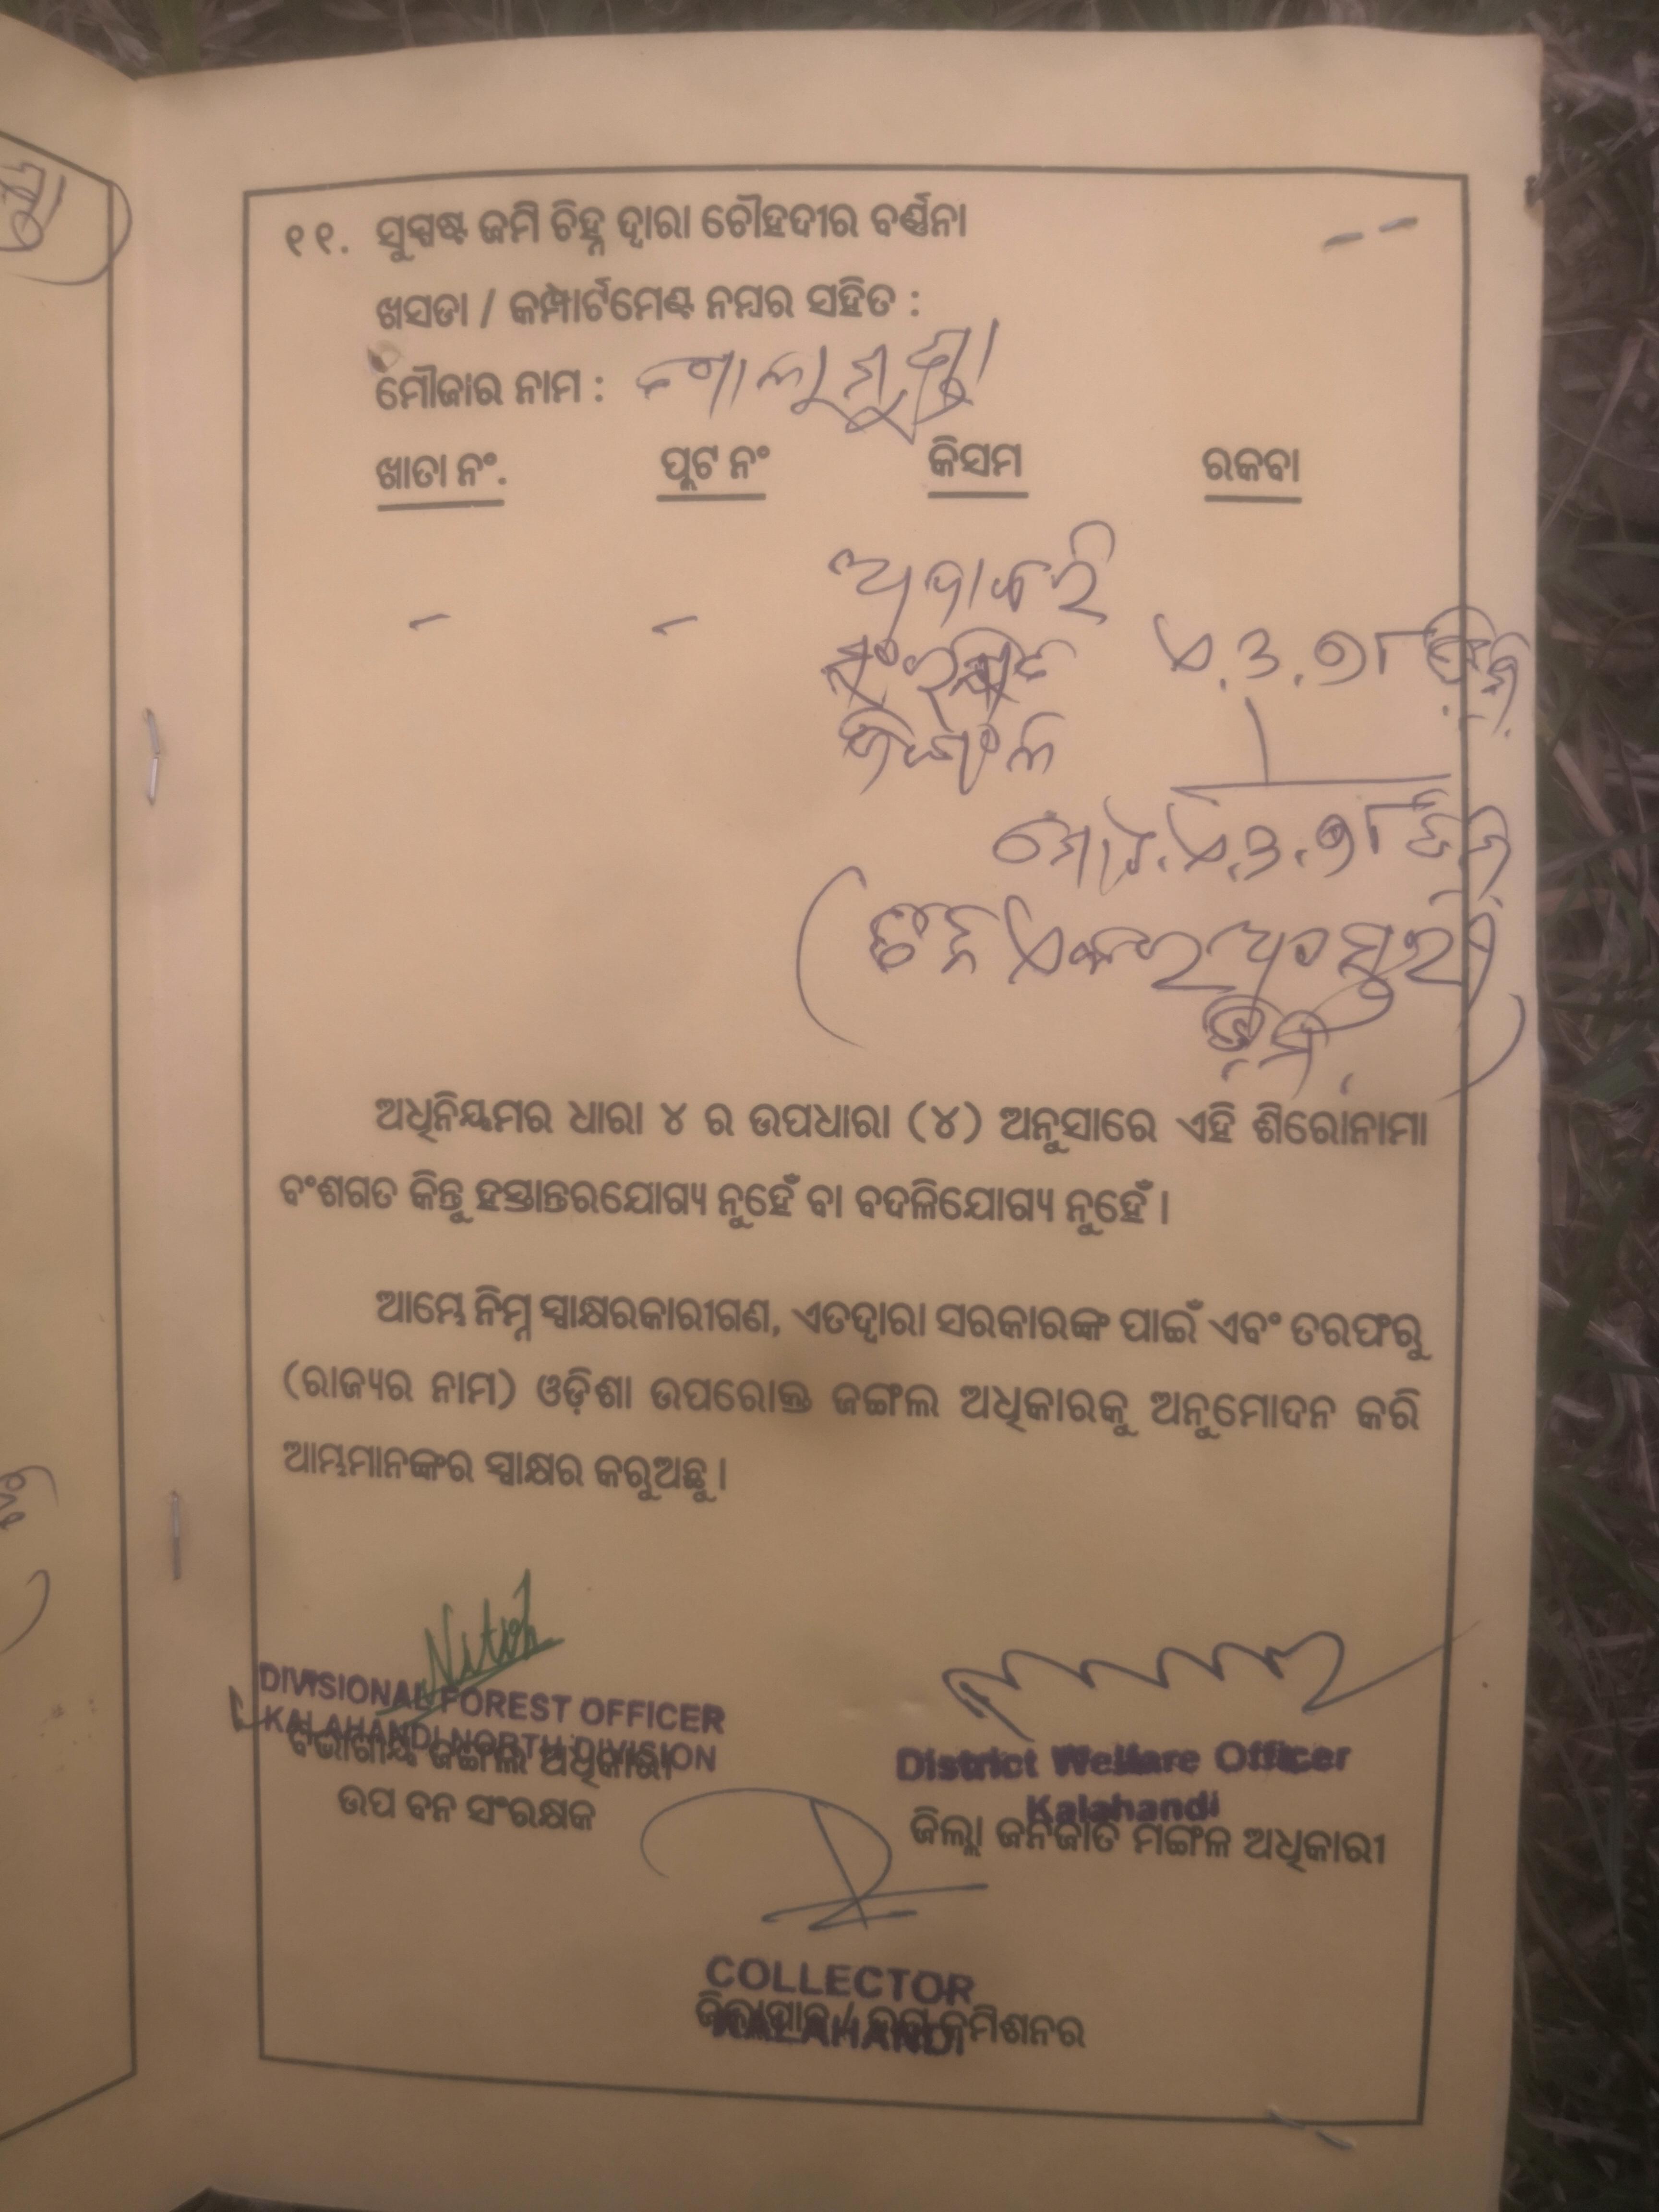 ୧୧. ସୁସ୍ପଷ୍ଟ ଜମି ଚିହ୍ନ ଦ୍ୱାରା ଚୌହଦୀର ବର୍ଣ୍ଣନା
ଖସଡା / କମ୍ପାର୍ଟମେଣ୍ଟ ନମ୍ବର ସହିତ :
ମୌଜାର ନାମ :
ଖାତା ନଂ. ପ୍ଲଟ ନଂ କିସମ ରକବା
- -
ସଂରକ୍ଷିତ
ଜଙ୍ଗଲ
ଅଧିନିୟମର ଧାରା ୪ ର ଉପଧାରା (୪) ଅନୁସାରେ ଏହି ଶିରୋନାମା
ବଂଶଗତ କିନ୍ତୁ ହସ୍ତାନ୍ତରଯୋଗ୍ୟ ନୁହେଁ ବା ବଦଳିଯୋଗ୍ୟ ନୁହେଁ ।
ଆମ୍ଭେ ନିମ୍ନ ସ୍ୱାକ୍ଷରକାରୀଗଣ, ଏତଦ୍ୱାରା ସରକାରଙ୍କ ପାଇଁ ଏବଂ ତରଫରୁ
(ରାଜ୍ୟର ନାମ) ଓଡ଼ିଶା ଉପରୋକ୍ତ ଜଙ୍ଗଲ ଅଧିକାରକୁ ଅନୁମୋଦନ କରି
ଆମ୍ଭମାନଙ୍କର ସ୍ୱାକ୍ଷର କରୁଅଛୁ ।
Nitish
DIVISIONAL FOREST OFFICER
KALAHANDI NORTH DIVISION
ବିଭାଗୀୟ ଜଙ୍ଗଲ ଅଧିକାରୀ
ଉପ ବନ ସଂରକ୍ଷକ
District Welfare Officer
Kalahandi
ଜିଲ୍ଲା ଜନଜାତି ମଙ୍ଗଳ ଅଧିକାରୀ
COLLECTOR
KALAHANDI
ଜିଲ୍ଲାପାଳ / ଉପ କମିଶନର